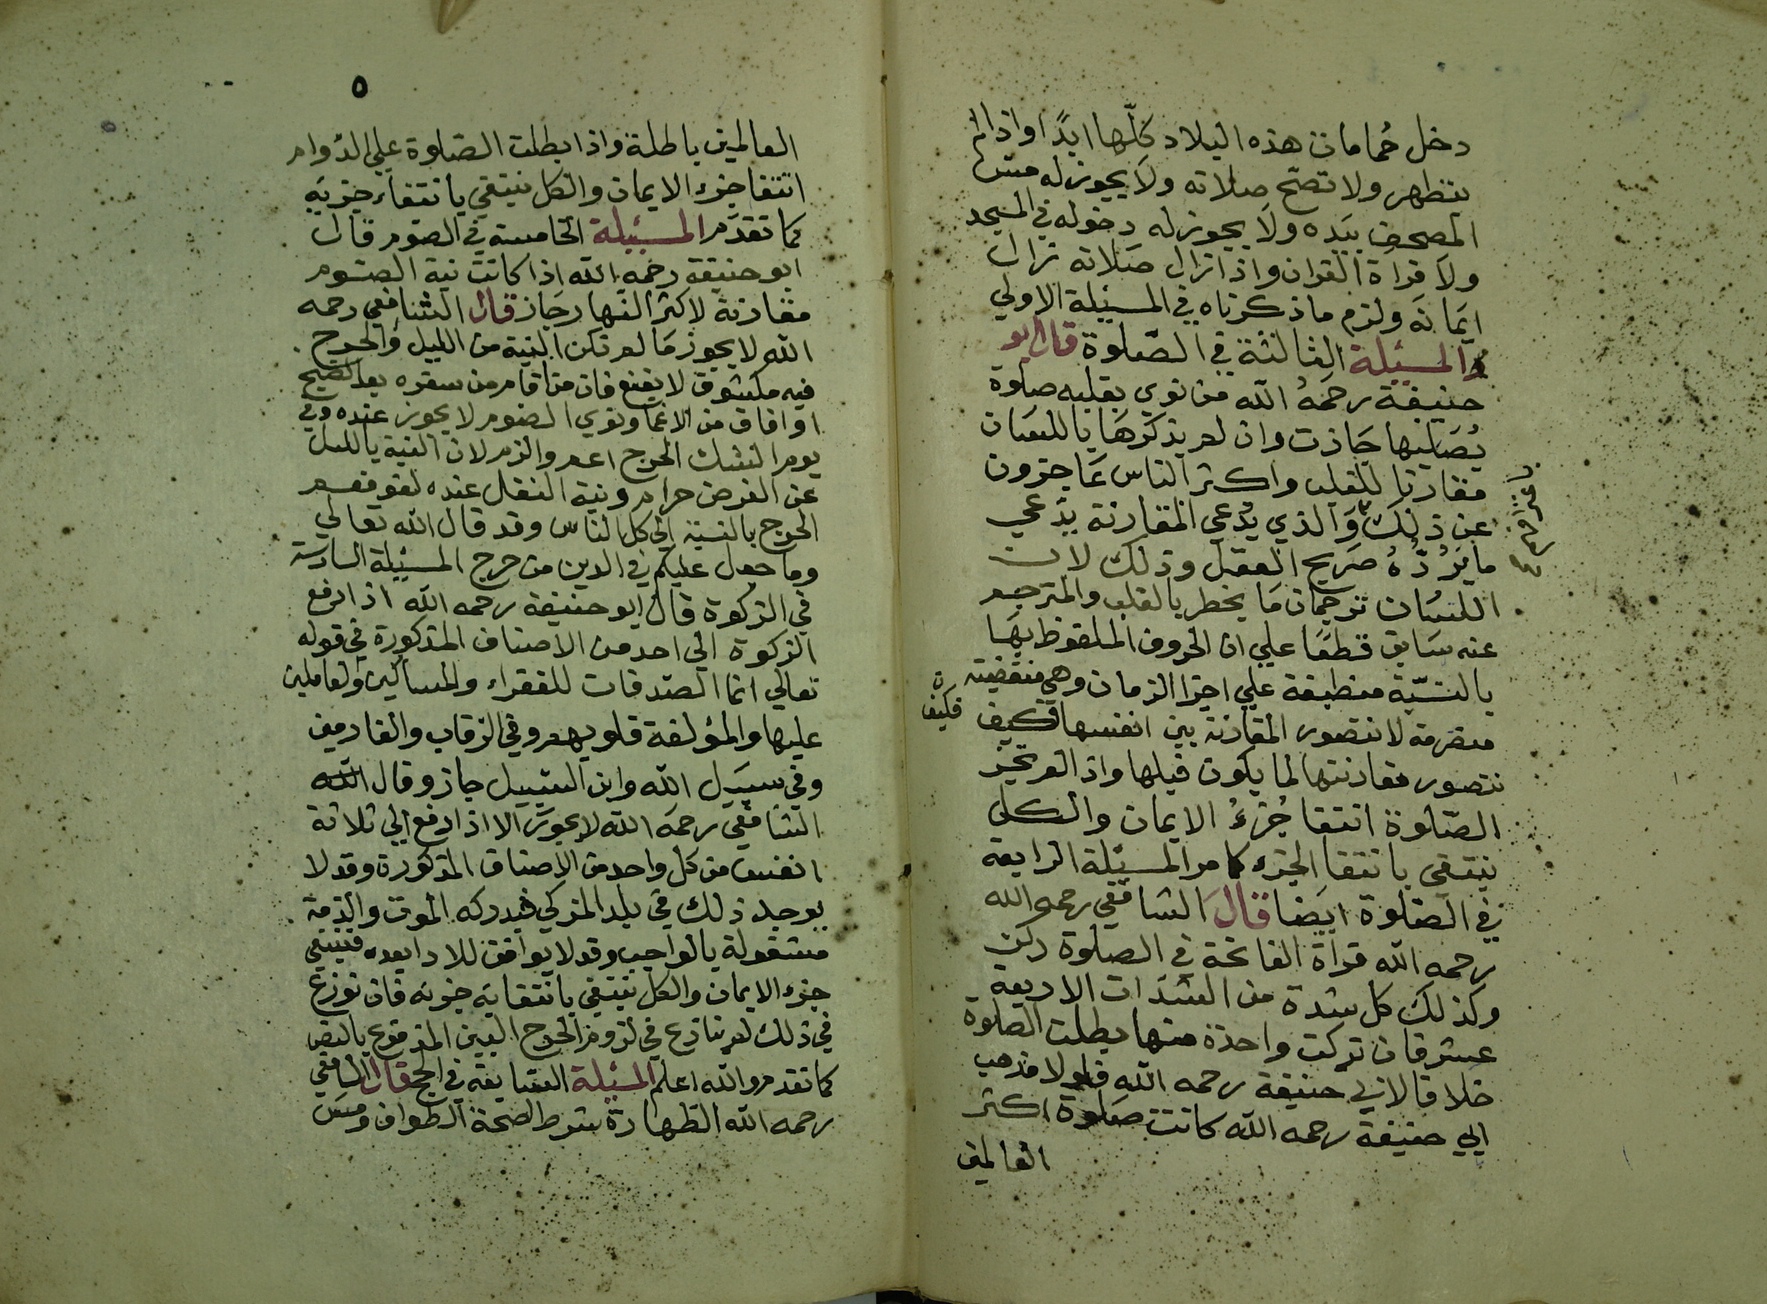 دخل حمامات هذه البلاد كلّها ابدًا واذا لم
يتطهر ولا تصح صلاته ولا يجوز له مسّ
المصحف بيده ولا يجوز له دخوله في المسجد
ولا قراة القران واذا زال صلاته زال
ايمانه ولزم ما ذكرناه في المسئلة الاولي
المسئلة الثالثة في الصّلوة قال ابو
حنيفة رحمهُ الله من نوي بقلبه صلوة
يُصَليها جازت وان لم يذكرها باللسان
مقارنا للقلب واكثر الناس عاجزون
عن ذلك والذي يدعي المقارنة يدعي
ما يَرُدُّهُ صريح العقل وذلك لان
اللسُان ترجمان ما يخطر بالقلب والمترجم
عنه سابق قطعًا علي ان الحروف الملفوظ بها
بالنسّبة منطبقة علي اجزا الزمان وهي منقضية
منصرمة لا نتصور المقارنة بين انفسها فكيف
فكيف
نتصور مقارنتها لما يكون قبلها واذا لم تجز
الصّلوة انتفا جُزءُ الايمان والكل
ينتفي بانتفا الجزء كما مر المسئلة الرابعة
في الصّلوة ايضا قال الشافعي رحمه الله
رحمه الله قراة الفاتحة في الصلوة ركن
وكذلك كل شدة من الشدات الاربعة
عشر فان تركت واحدة منها بطلت الصلوة
خلافا لابي حنيفة رحمه الله فلولا مذهب
ابي حنيفة رحمه الله كانت صلوة اكثر
العالمين
٥
العالمين باطلة واذا بطلت الصّلوة علي الدوام
انتفا جزء الايمان والكل ينتفي بانتفاء جزيه
كما تقدّم المسئلة الخامسة في الصوم قال
ابو حنيفة رحمه الله اذا كانت نية الصّوم
مقارنة لاكثر النهار جاز قال الشافعي رحمه
الله لا يجوز ما لم تكن النية من الليل والحرج
فيه مكشوف لا يقنع فان من اقام من سفره بعد الصبح
او افاق من الاغما ونوي الصوم لا يجوز عنده وفي
يوم الشك الحرج اعم والزم لان النية بالليل
عن الفرض حرام ونية النفل عنده لغو فعم
الحرج بالنسبة الي كل الناس وقد قال الله تعالي
وما جعل عليكم في الدين من حرج المسئلة السادسة
في الزكوة قال ابو حنيفة رحمه الله اذا دفع
الزكوة الي احد من الاصناف المذكورة في قوله
تعالي انما الصّدقات للفقراء والمساكين والعاملين
عليها والمؤلفة قلوبهم وفي الرقاب والغارمين
وفي سبيل الله وابن السّبيل جاز وقال الله
الشافعي رحمه الله لا يجوز الا اذا دفع الي ثلاثة
انفس من كل واحد من الاصناف المذكورة وقد لا
يوجد ذلك في بلد المزكي فيدركه الموت والذمة
مشغولة بالواجب وقد لا يوافق للادا بعده فينتفي
جزء الايمان والكل ينتفي بانتفايه جزيه فان نوزع
في ذلك لم ينازع في لزوم الحرج البين المدفوع بالنص
كما تقدم والله اعلم المسئلة السّابعة في الحج قال الشافعي
رحمه الله الطهارة شرط لصحة الطواف ومسّ